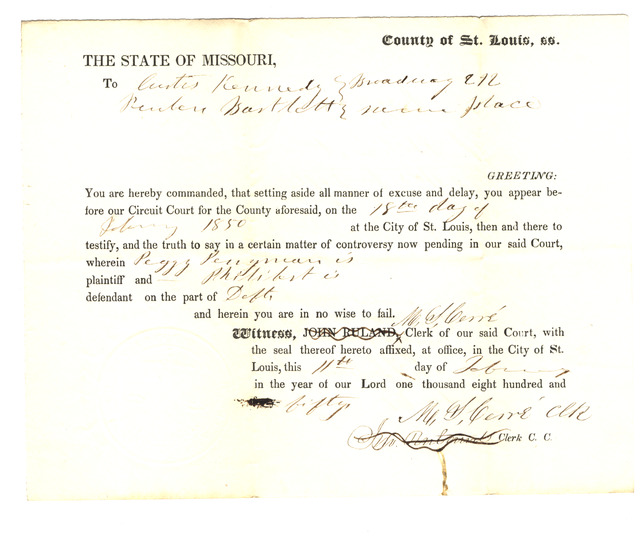 County of St. Louis, ss.
THE STATE OF MISSOURI,
To Curtis Kennedy Broadway
Reuben Bartlett same place
GREETING:
You are hereby commanded, that setting aside all manner of excuse and delay, you appear be-
fore our Circuit Court for the County aforesaid, on the 18th day of
February 1850 at the City of St. Louis, then and there to
testify, and the truth to say in a certain matter of controversy now pending in our said Court,
wherein Peggy Perryman is
plaintiff and Philibert is
defendant on the part of Deft
and herein you are in no wise to fail. M. S. Cerré
Witness, JOHN RULAND, Clerk of our said Court, with
the seal thereof hereto affixed, at office, in the City of St.
Louis, this 11th day of February
in the year of our Lord one thousand eight hundred and
fifty M. S. Cerré Clk
Jno. Ruland Clerk C. C.